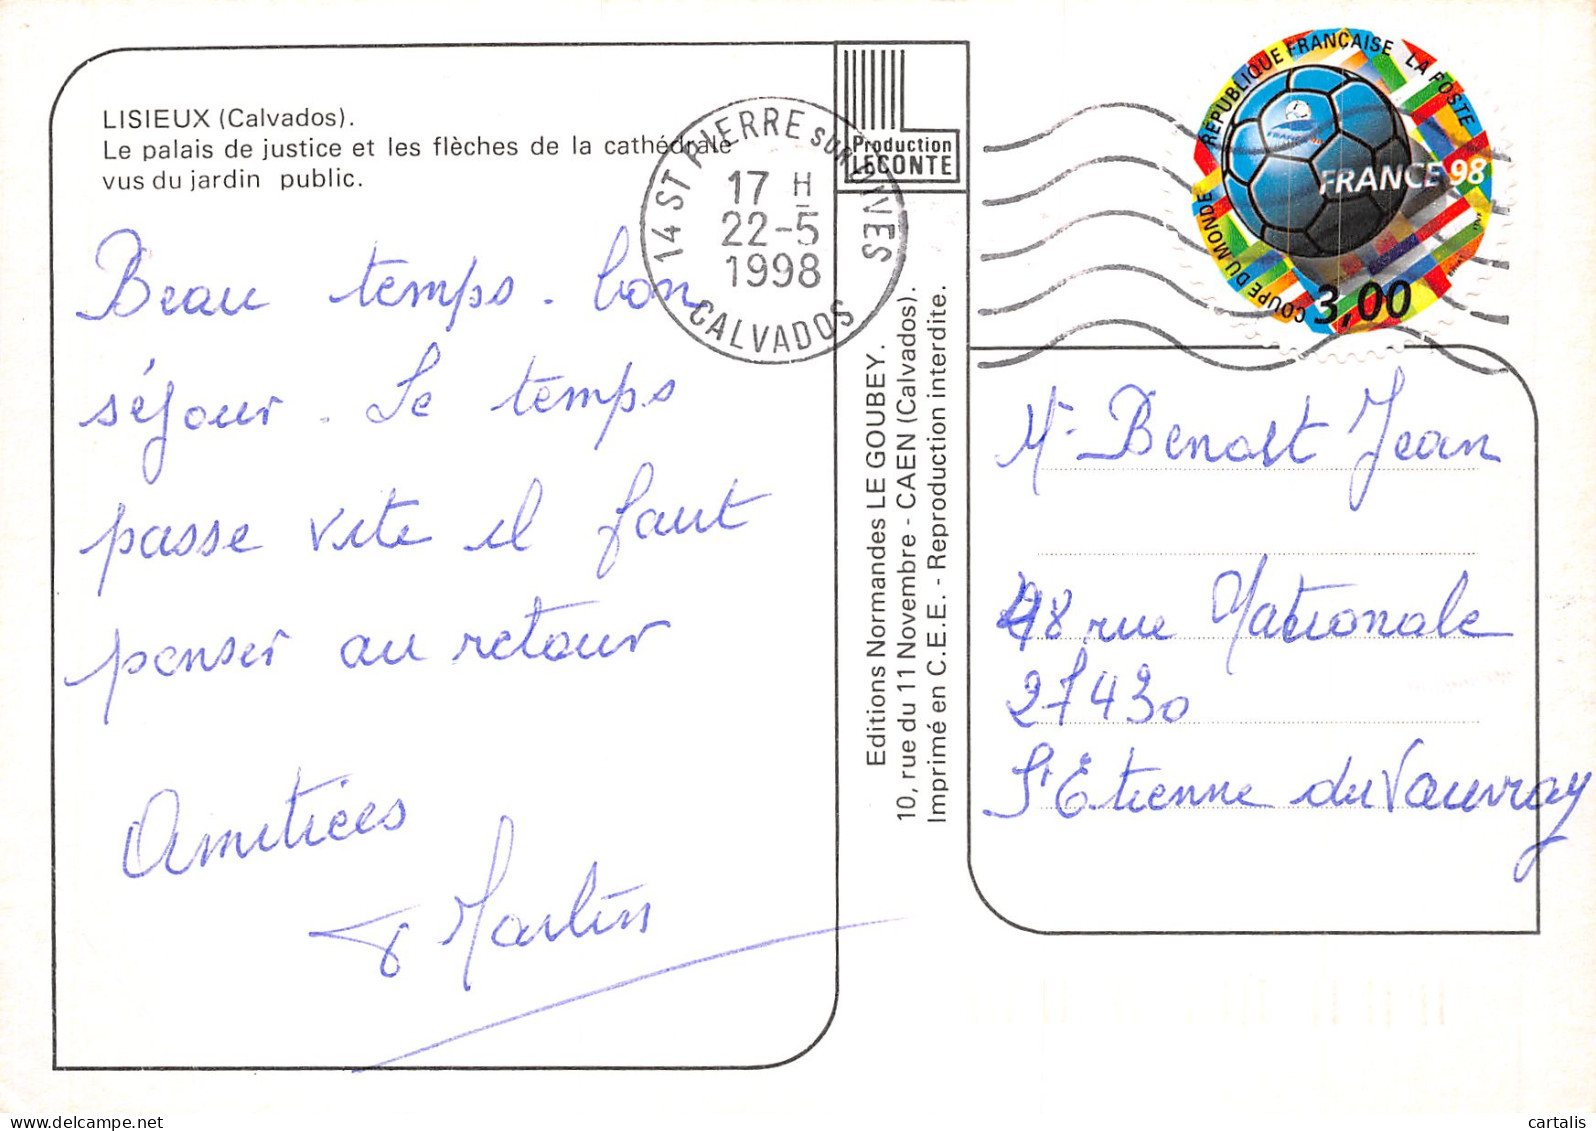 LISIEUX (Calvados).
Le palais de justice et les flèches de la cathédrale
vus du jardin public.
Beau temps. bon
séjour. Le temps
passe vite il faut
penser au retour
Amitiées
Martin
14 ST PIERRE SUR DIVES
17 H
22-5
1998
CALVADOS
Production
LECONTE
Editions Normandes LE GOUBEY.
10, rue du 11 Novembre - CAEN (Calvados).
Imprimé en C.E.E. - Reproduction interdite.
RÉPUBLIQUE FRANÇAISE LA POSTE
FRANCE 98
COUPE DU MONDE
3,00
Mr Benoit Jean
48 rue Nationale
27430
St Etienne du Vauvray
cartalis.com